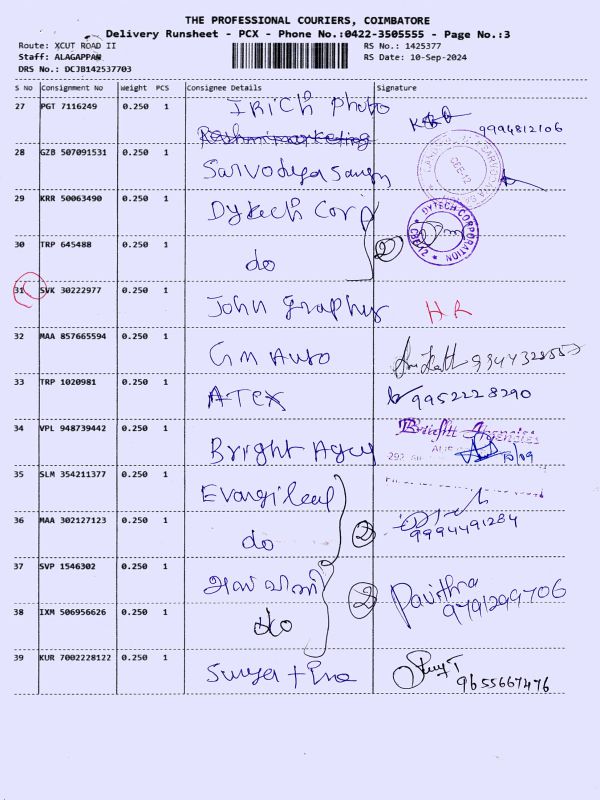 THE PROFESSIONAL COURIERS, COIMBATORE
Delivery Runsheet - PCX - Phone No.:0422-3505555 - Page No.:3
Route: XCUT ROAD II
RS No.: 1425377
Staff: ALAGAPPAN
RS Date: 10-Sep-2024
DRS No.: DCJB142537703
S No Consignment No Weight PCS Consignee Details Signature
27 PGT 7116249 0.250 1 IRich Photo
Rashmi marketing
9994812106
28 GZB 507091531 0.250 1 Sarvodaya Sangh
CBE-12
29 KRR 50063490 0.250 1 Dytech Corp
DYTECH CORPORATION CBE-12
30 TRP 645488 0.250 1 do 2
31 SVK 30222977 0.250 1 John Graphys HR
32 MAA 857665594 0.250 1 GM Auto
33 TRP 1020981 0.250 1 ATEX 9952228290
34 VPL 948739442 0.250 1 Bright Agcy Bright Agencies
10/09
35 SLM 354211377 0.250 1
36 MAA 302127123 0.250 1 do 2 9994491284
37 SVP 1546302 0.250 1
38 IXM 506956626 0.250 1 do 2 Pavithra
9791299706
39 KUR 7002228122 0.250 1 Surya
9655667476